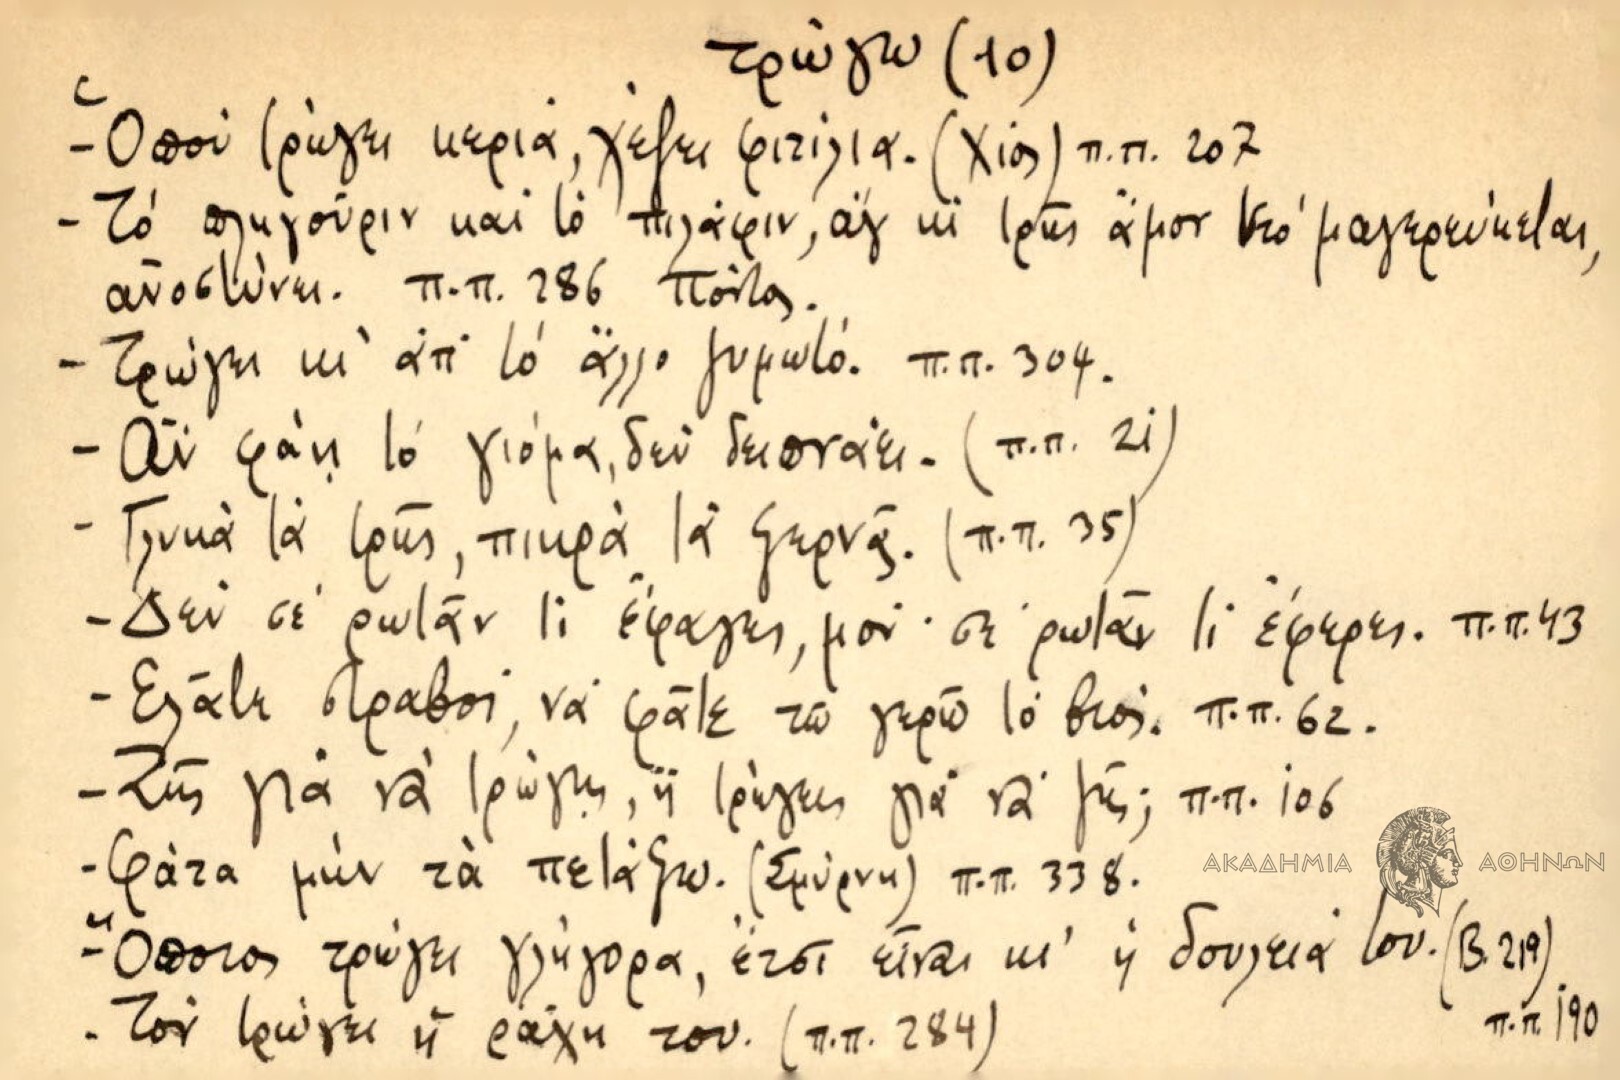 τρώγω (10)
- Ὁποὺ τρώγει κεριά, χέζει φιτίλια. (Χίος) π.π. 207
- Τό πληγούριν καὶ τὸ πιλάφιν, ἄγ κὶ τρῆς ἄμον τό μαγερεύκεται,
ἀνοστύνει. π.π. 286 Πόντος.
- Τρώγει κι' ἀπ' τό ἄλλο ζυμωτό. π.π. 304.
- Ἄν φάῃ τό γιόμα, δεν δειπνάει. (π.π. 21)
- Γλυκὰ τὰ τρῆς, πικρὰ τὰ ξερνᾷς. (π.π. 35)
- Δεν σὲ ρωτᾶν τὶ ἔφαγες, μον' σὲ ρωτᾶν τὶ ἔφερες. π.π. 43
- Ελᾶτε στραβοί, νὰ φᾶτε τῶ γερῶ τὸ βιός. π.π. 62.
- Ζῆς γιὰ νὰ τρώγῃς, ἤ τρώγεις γιὰ νὰ ζῆς; π.π. 106
- Φάτα μὴν τὰ πετάξω. (Σμύρνη) π.π. 338.
- Ὅποιος τρώγει γλήγορα, ἔτσι εἶναι κι' ἡ δουλειά του. (Β. 219)
π.π. 190
- Τὸν τρώγει ἡ ράχη του. (π.π. 284)
ΑΚΑΔΗΜΙΑ ΑΘΗΝΩΝ